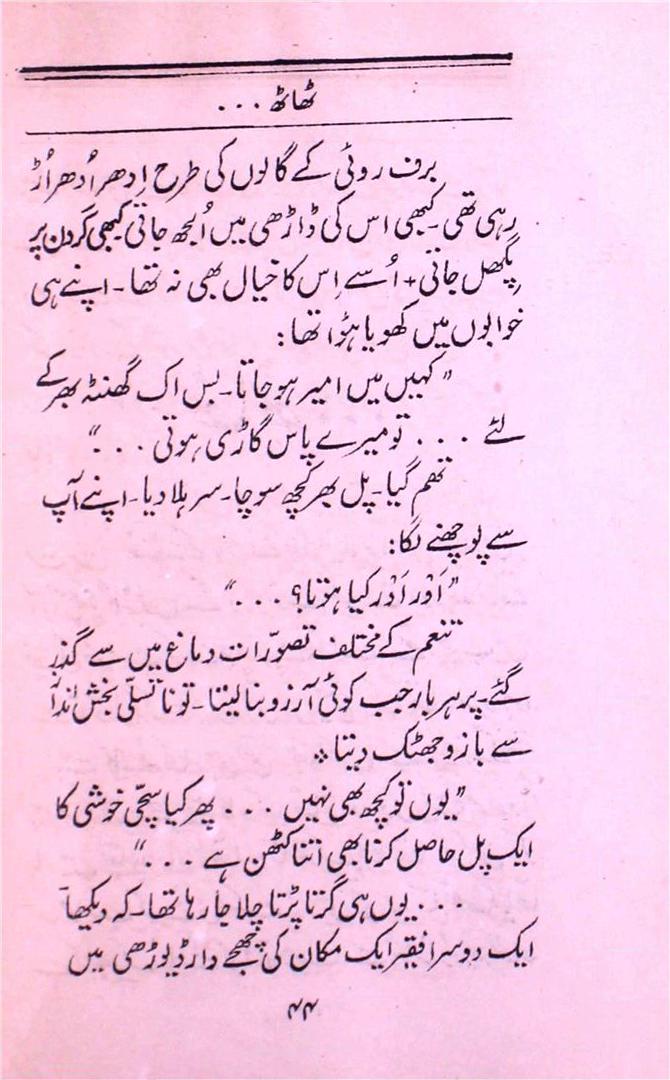 ٹھاٹھ ...
برف روئی کے گالوں کی طرح اِدھر اُدھر اُڑ
رہی تھی۔ کبھی اس کی ڈاڑھی میں اُلجھ جاتی کبھی گردن پر
پِگھل جاتی + اُسے اِس کا خیال بھی نہ تھا۔ اپنے ہی
خوابوں میں کھویا ہؤا تھا:
"کہیں میں امیر ہو جاتا۔ بس اک گھنٹہ بھر کے
لئے ... تو میرے پاس گاڑی ہوتی ..."
تھم گیا۔ پل بھر کچھ سوچا۔ سر ہلا دیا۔ اپنے آپ
سے پوچھنے لگا:
"اَوْر اَوْر کیا ہوتا؟ ..."
تنعم کے مختلف تصوّرات دماغ میں سے گذر
گئے۔ پر ہر بار جب کوئی آرزو بنا لیتا۔ تو ناتسلّی بخش انداز
سے بازو جھٹک دیتا ٭
"یوں تو کچھ بھی نہیں ... پھر کیا سچّی خوشی کا
ایک پل حاصل کرنا بھی اتنا کٹھن ہے ..."
... یوں ہی گرتا پڑتا چلا جا رہا تھا۔ کہ دیکھا
ایک دوسرا فقیر ایک مکان کی چھجے دار ڈیوڑھی میں
۴۴